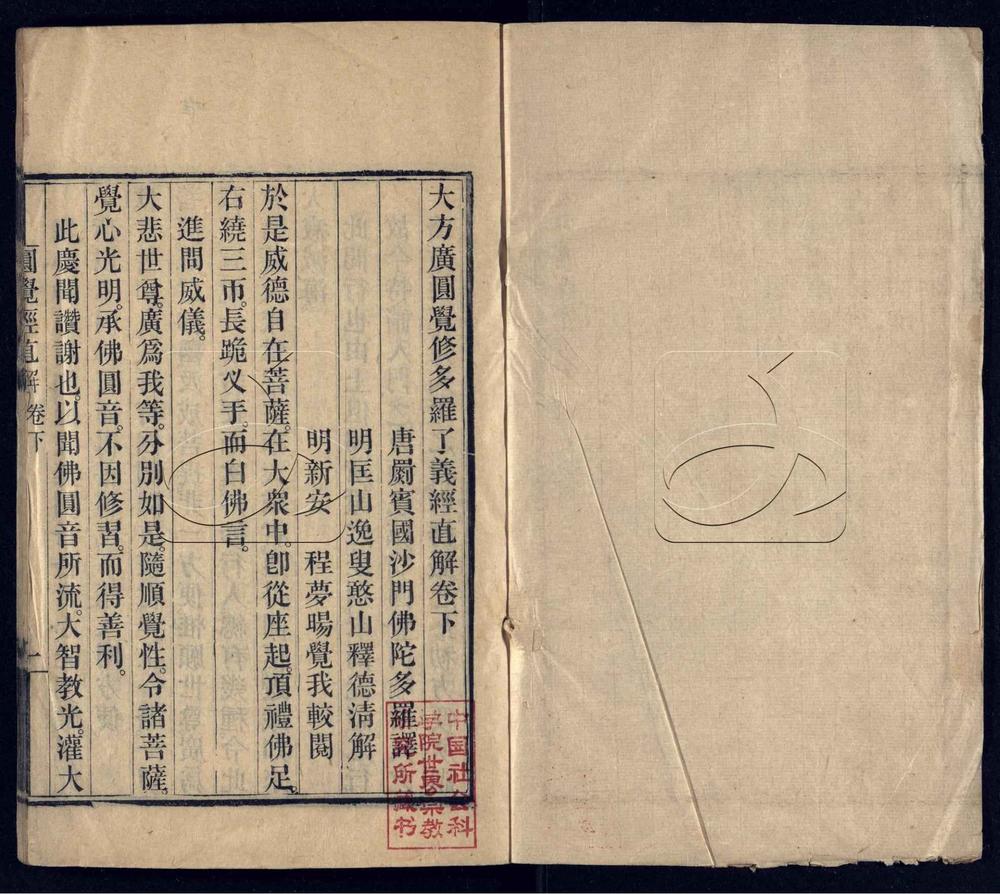 大方廣圓覺修多羅了義經直解卷下
唐罽賓國沙門佛陀多羅譯
明匡山逸叟憨山釋德淸解
明新安　程夢暘覺我較閱
於是威德自在菩薩。在大衆中。卽從座起。頂禮佛足。
右繞三帀。長跪叉手。而白佛言。
進問威儀。
大悲世尊。廣爲我等。分別如是。隨順覺性。令諸菩薩。
覺心光明。承佛圓音。不因修習。而得善利。
此慶聞讚謝也。以聞佛圓音所流。大智教光。灌大
圓覺經直解　卷下　一
中国社会科
学院世界宗教
研究所藏书